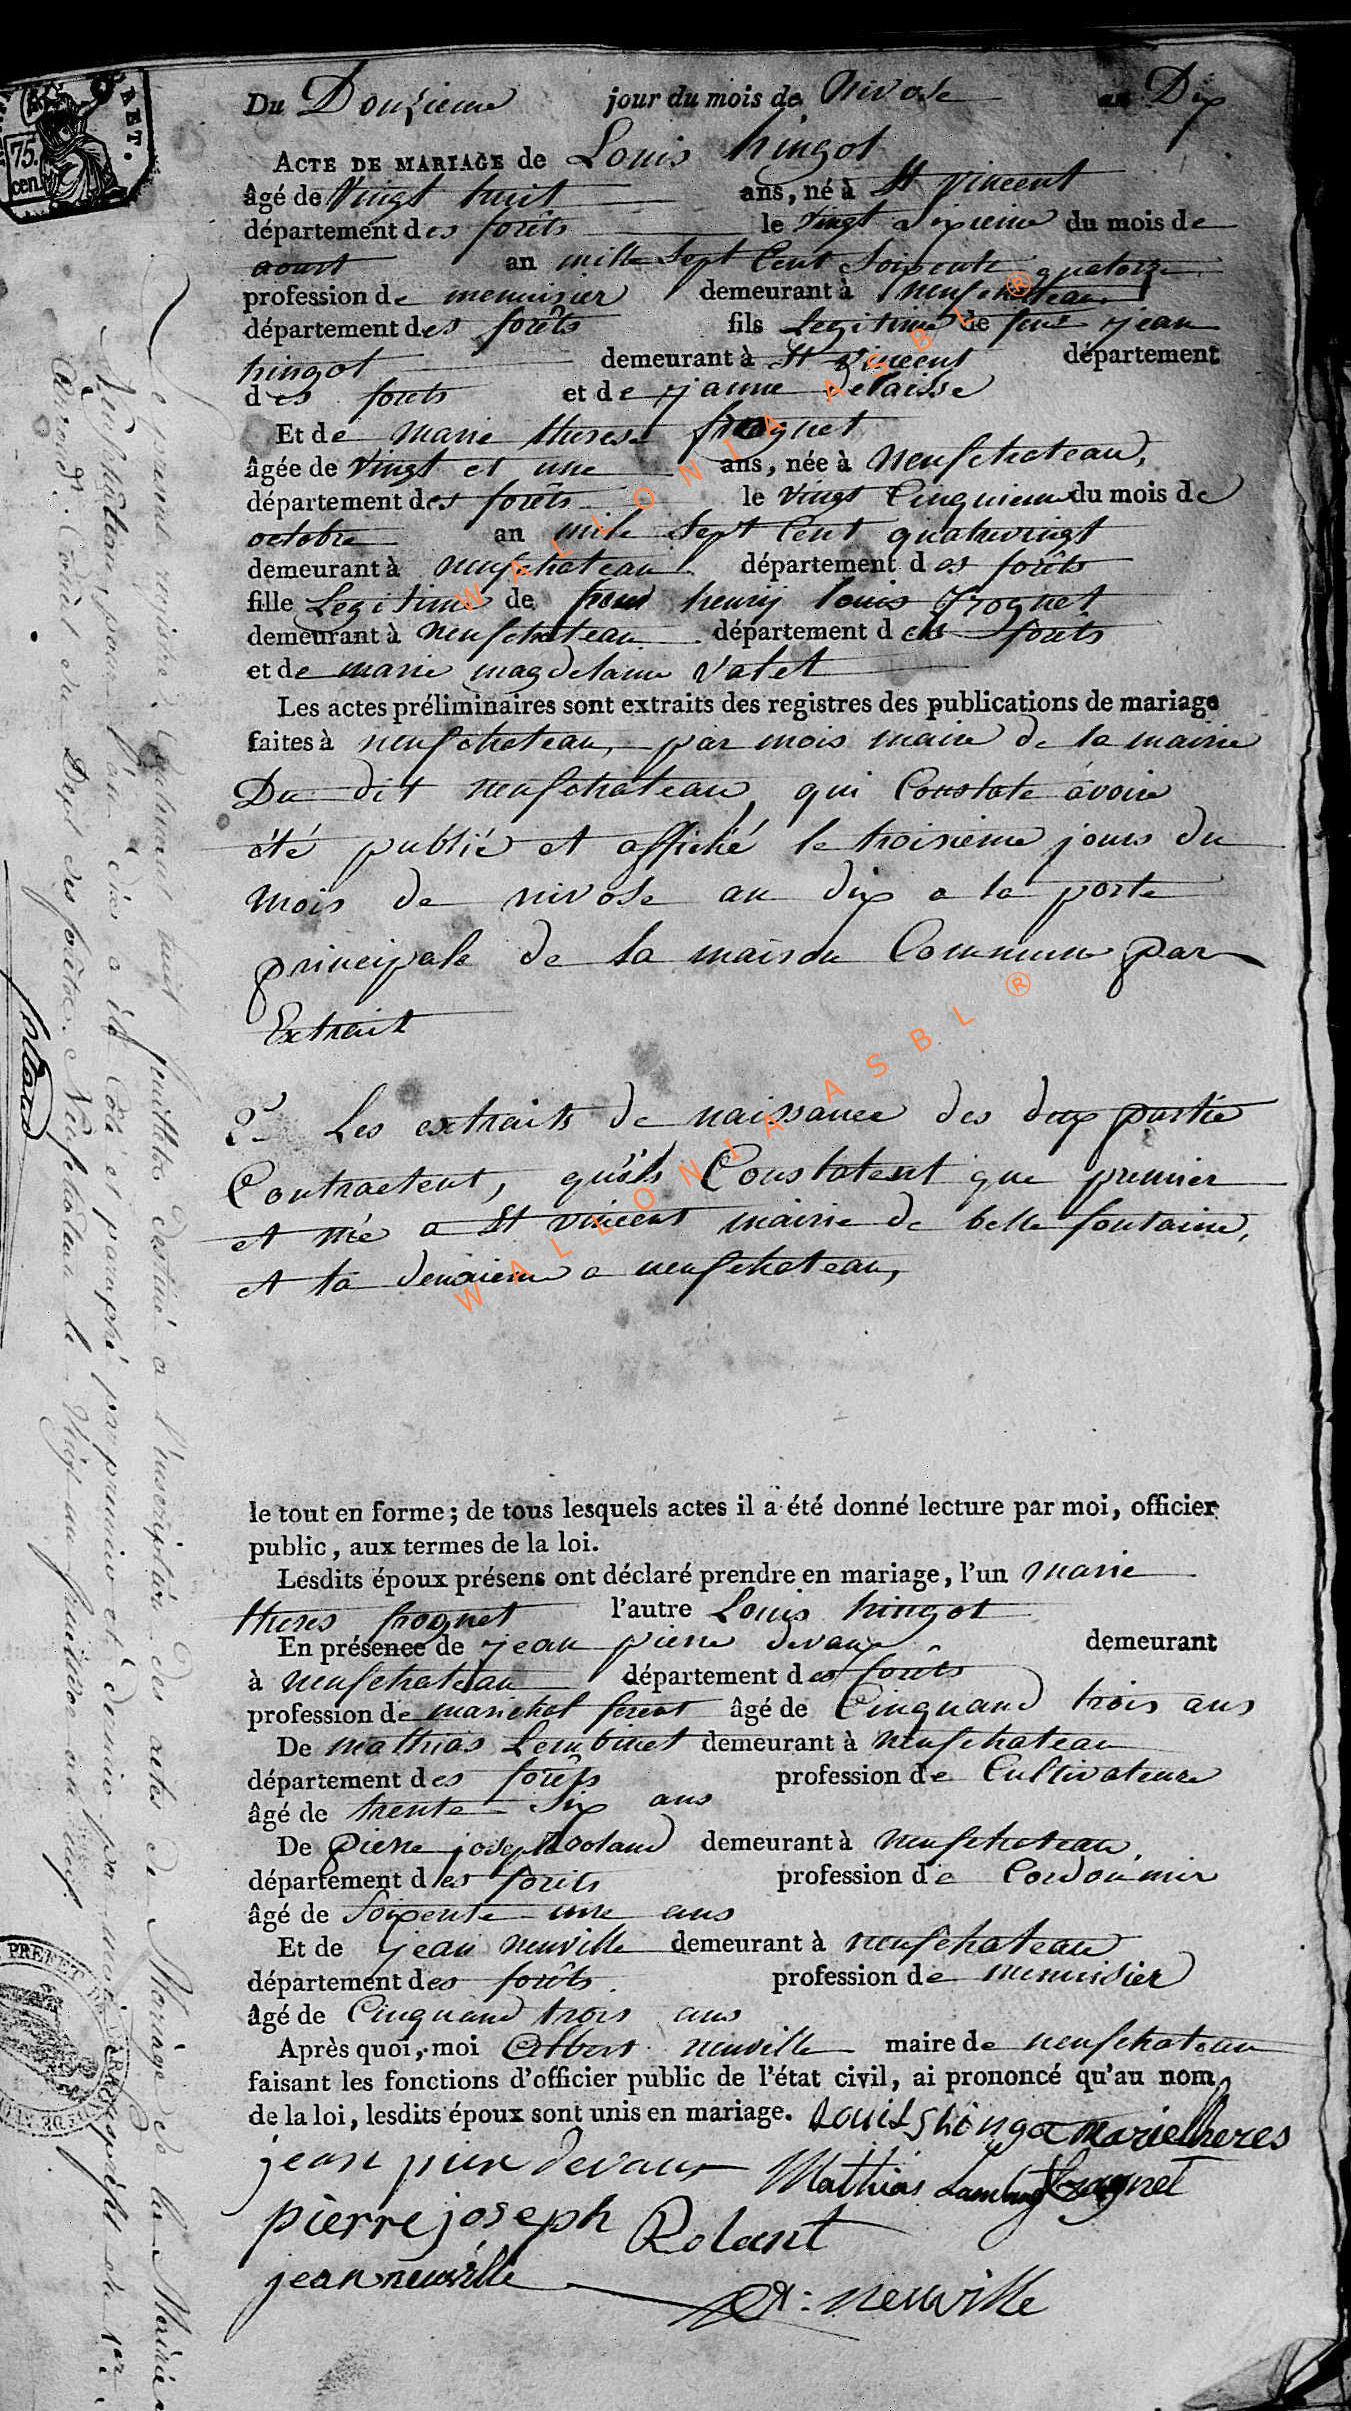 Du Douzieme jour du mois de Nivose an Dix
ACTE DE MARIAGE de Louis hingot
âgé de Vingt huit ans, né à St vincent
département des forêts le vingt sixieme du mois de
aoust an mille sept Cent Soixante quatorze
profession de menuisier demeurant à neufchateau
département des forêts fils Legitime de feus jean
hingot demeurant à St vincent département
des forets et de janne delaisse
Et de marie therese frognet
âgée de vingt et une ans, née à Neufchateau,
département des forêts le vingt Cinquieme du mois de
octobre an mile Sept Cent quatrevingt
demeurant à neufchateau département des forêts
fille Legitime de henry louis frognet
demeurant à neufchateau département des forets
et de marie magdelaine Valet
Les actes préliminaires sont extraits des registres des publications de mariage
faites à neufchateau, par mois maire de la mairie
Du dit neufchateau, qui Constate avoire
été publié et affiché le troisieme jours du
mois de nivose an dix a la porte
principale de la maison Commune par
Extrait
2.º Les extraits de naissance des deux partie
Contractent, qu'ils Constatent que premier
et né a St vincent mairie de belle fontaine,
et la deuxieme a neufchateau,
le tout en forme; de tous lesquels actes il a été donné lecture par moi, officier
public, aux termes de la loi.
Lesdits époux présens ont déclaré prendre en mariage, l'un marie
theres frognet l'autre Louis hingot
En présence de jean pierre devaux demeurant
à neufchateau département des forêts
profession de marichal ferent âgé de Cinquand trois ans
De mathias Lembinet demeurant à neufchateau
département des forêts profession de Cultivateure
âgé de trente-six ans
De Pierre joseph Roland demeurant à neufchateau,
département des forêts profession de Cordoumir
âgé de soixente une ans
Et de jean neuville demeurant à neufchateau
département des forêts profession de menuisier
âgé de Cinquand trois ans
Après quoi, moi Albert neuville maire de neufchateau
faisant les fonctions d'officier public de l'état civil, ai prononcé qu'au nom
de la loi, lesdits époux sont unis en mariage. Louis hingot marie theres
jean pier devaux Mathias frognet
pierre joseph Rolant
jean neuville A: neuville
Le present registre contenant huit feuillets destiné a l'inscription des actes de Mariage de la Mairie
Neufchateau, pour l'an dix a été Coté et paraphé par premier et dernier par nous
Arrond.t Com.l du Dep.t des forêts. Neufchateau le
75.
cen.
WALLONIA ASBL ®
WALLONIA ASBL ®